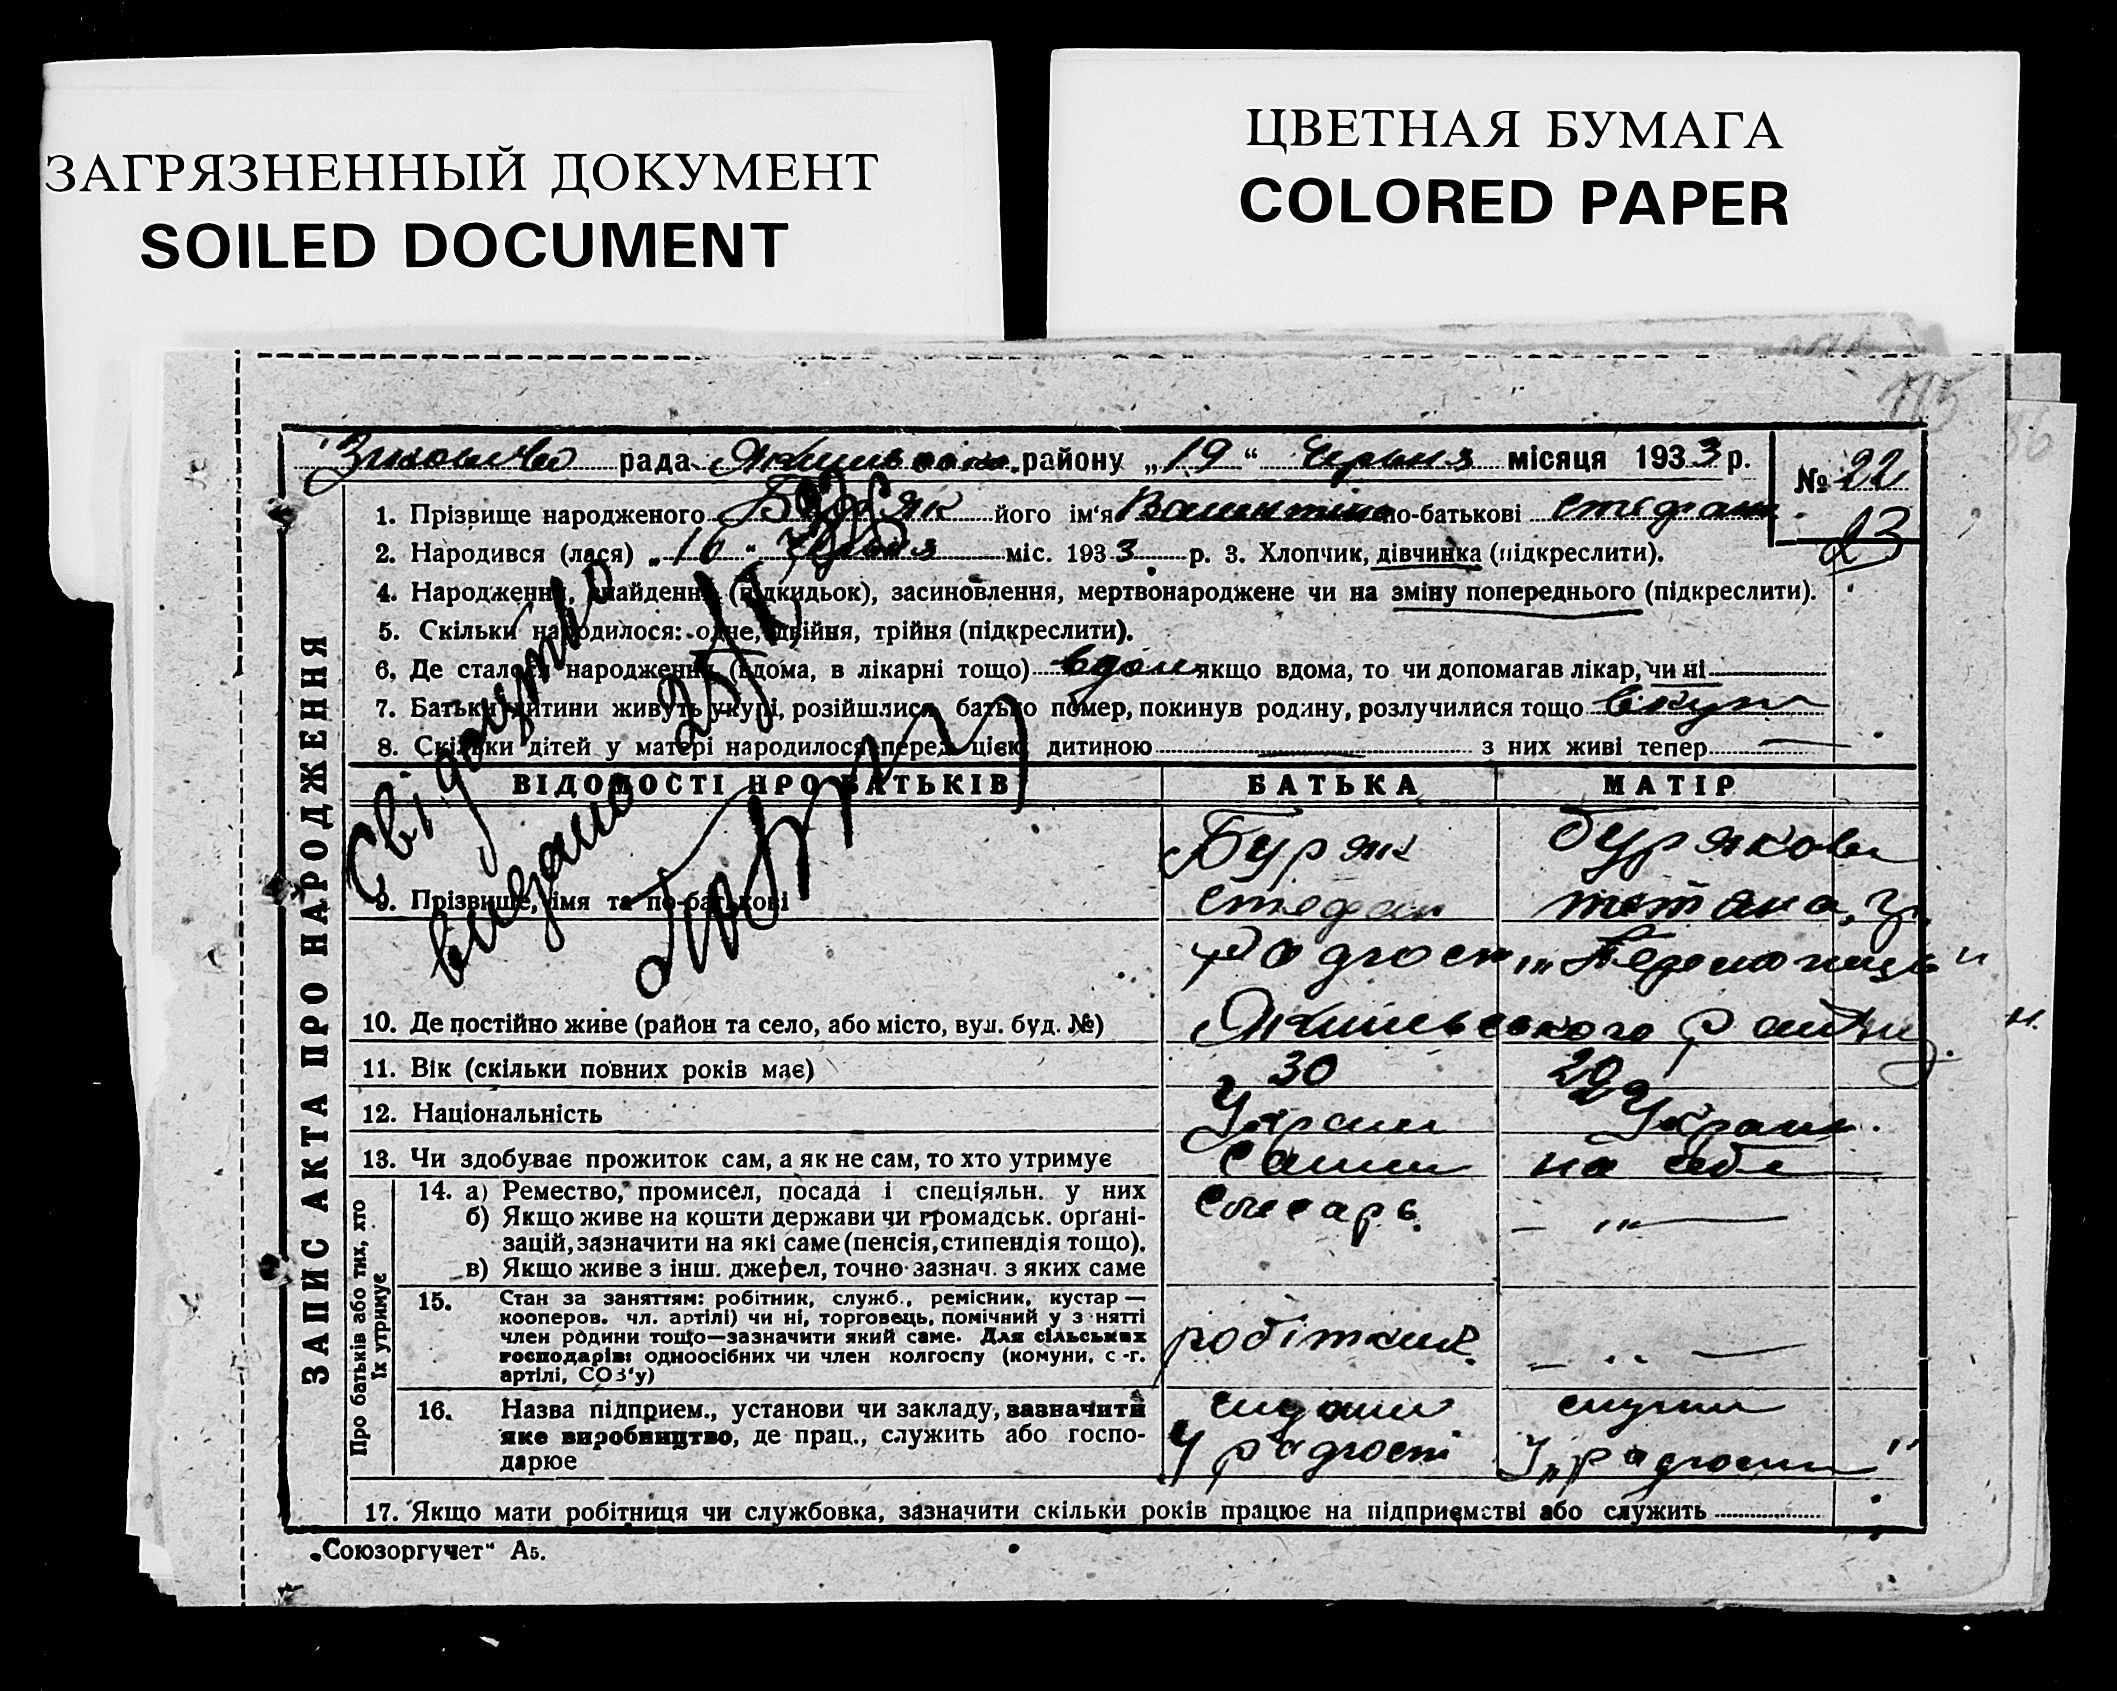 ЗАГРЯЗНЕННЫЙ ДОКУМЕНТ
SOILED DOCUMENT
ЦВЕТНАЯ БУМАГА
COLORED PAPER
115
рада району „19“ Червня місяця 1933 р.
№ 22
23
1. Прізвище народженого Буряк його ім'я Валентіна по-батькові Стефан
2. Народився (лася) „16“ Червня міс. 1933 р. 3. Хлопчик, дівчинка (підкреслити).
4. Народження, знайдення (підкидьок), засиновлення, мертвонароджене чи на зміну попереднього (підкреслити).
5. Скільки народилося: одне, двійня, трійня (підкреслити).
6. Де сталося народження (вдома, в лікарні тощо) вдом якщо вдома, то чи допомагав лікар, чи ні
7. Батьки дитини живуть укупі, розійшлися, батько помер, покинув родину, розлучилися тощо вкупі
8. Скільки дітей у матері народилося перед цією дитиною — з них живі тепер —
Свідоцтво
видано 25/
ЗАПИС АКТА ПРО НАРОДЖЕННЯ
ВІДОМОСТІ ПРО БАТЬКІВ БАТЬКА МАТІР
Буряк Бурякова
9. Прізвище, імя та по-батькові Стефан Тетяна
10. Де постійно живе (район та село, або місто, вул. буд. №) району
11. Вік (скільки повних років має) 30 29
12. Національність Украин Украин.
13. Чи здобуває прожиток сам, а як не сам, то хто утримує Сами на себе
Про батьків або тих, хто їх утримує
14. а) Ремество, промисел, посада і спеціяльн. у них Слесарь — „ —
б) Якщо живе на кошти держави чи громадськ. органі-
зацій, зазначити на які саме (пенсія, стипендія тощо).
в) Якщо живе з інш. джерел, точно зазнач. з яких саме
15. Стан за заняттям: робітник, служб., ремісник, кустар —
кооперов. чл. артілі) чи ні, торговець, помічний у з нятті
член родини тощо—зазначити який саме. Для сільських
господарів: одноосібних чи член колгоспу (комуни, с-г. робітник — „ —
артілі, СОЗ'у)
16. Назва підприєм., установи чи закладу, зазначити
яке виробництво, де прац., служить або госпо-
дарює
17. Якщо мати робітниця чи службовка, зазначити скільки років працює на підприємстві або служить
„Союзоргучет“ А5.